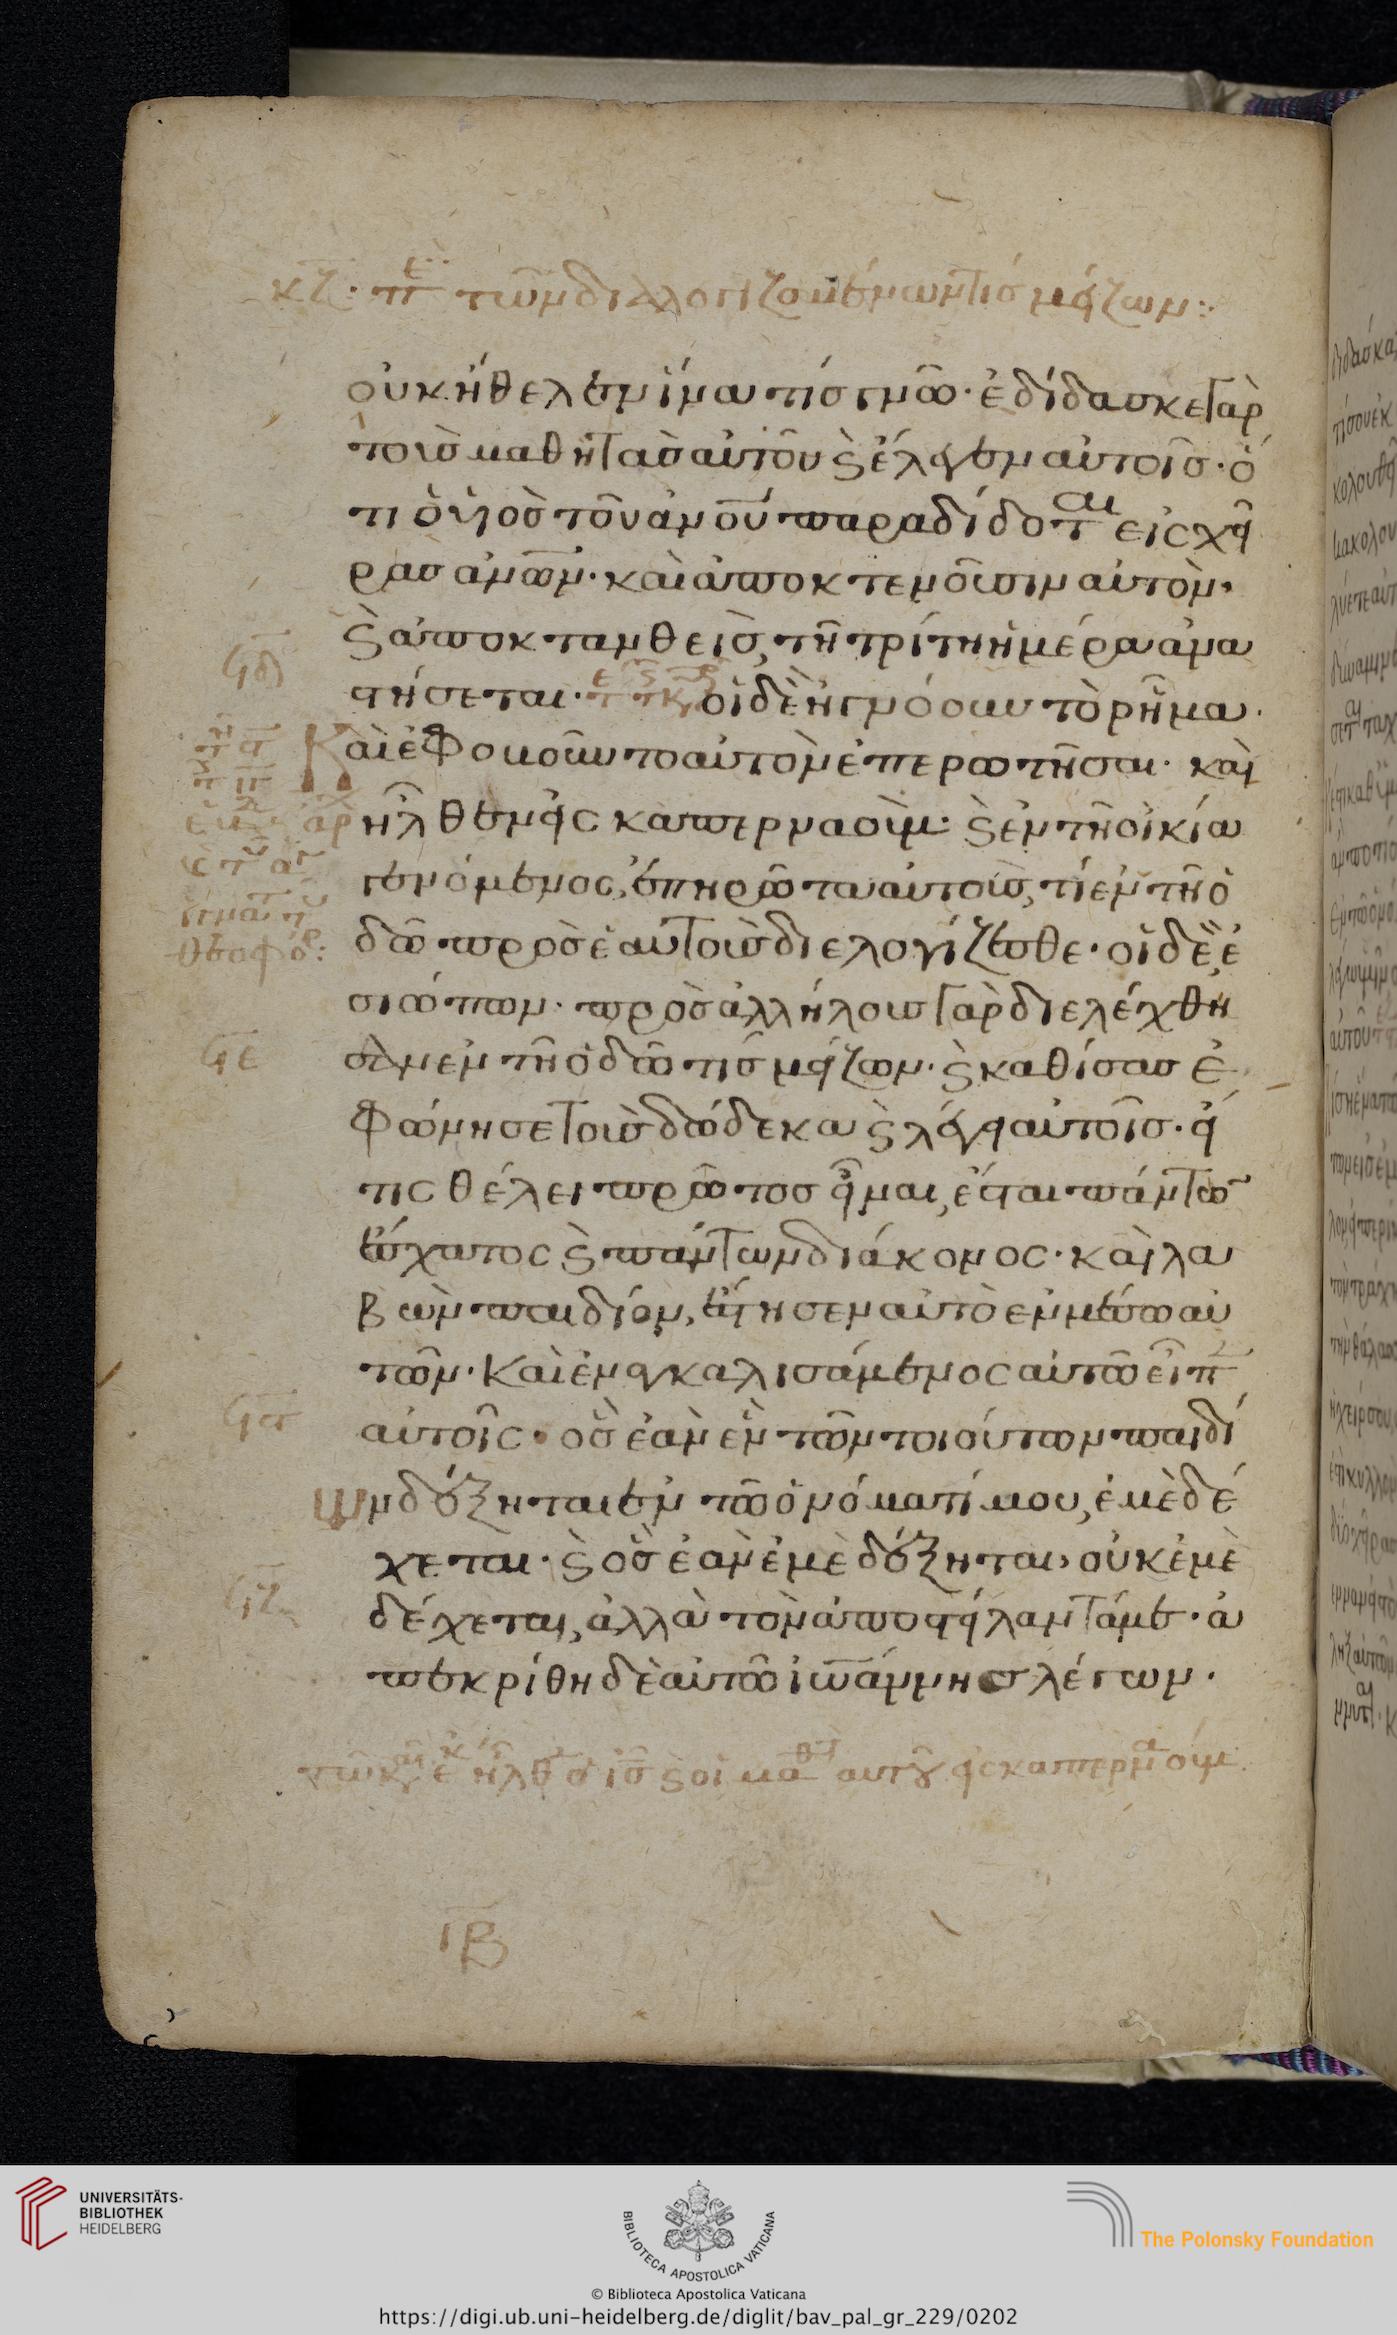 κζ· πε τῶν διαλογιζομένων τίς μείζων:
οὐκ ἤθελεν ἵνα τίς γνῶ· ἐδίδασκε γὰρ
τοὺς μαθητὰς αὐτοῦ ϗ ἔλεγεν αὐτοῖς· ὅ
τι ὁ υἱὸς τοῦ ἀνου παραδίδοται εἰς χεῖ
ρας ἀνων· καὶ ἀποκτενοῦσιν αὐτὸν,
ϗ ἀποκτανθεὶς, τῆ τρίτη ἡμέρα ἀνα
στήσεται· οἱ δὲ ἠγνόουν τὸ ρῆμα·
Καὶ ἐφοβοῦντο αὐτὸν ἐπερωτῆσαι· καὶ
ἦλθεν εἰς καπερναούμ· ϗ ἐν τῆ οἰκία
γενόμενος, ἐπηρῶτα αὐτοὺς, τί ἐν τῆ ὁ
δῶ πρὸς ἑαυτοὺς διελογίζεσθε· οἱ δὲ, ἐ
σιώπων· πρὸς ἀλλήλους γὰρ διελέχθη
σαν ἐν τῆ ὁδῶ τίς μείζων· ϗ καθίσας ἐ
φώνησε τοὺς δώδεκα ϗ λέγει αὐτοῖς· εἴ
τις θέλει πρῶτος εἶναι, ἔσται πάντων
ἔσχατος ϗ πάντων διάκονος· καὶ λα
βὼν παιδίον, ἔστησεν αὐτὸ ἐν μέσω αὐ
τῶν· Καὶ ἐναγκαλισάμενος αὐτῶ εἶπ
αὐτοῖς· ὃς ἐὰν ἓν τῶν τοιούτων παιδί
ων δέξηται ἐν τῶ ὀνόματί μου, ἐμὲ δέ
χεται· ϗ ὃς ἐὰν ἐμὲ δέξηται, οὐκ ἐμὲ
δέχεται, ἀλλὰ τὸν ἀποστείλαντά με· ἀ
πεκρίθη δὲ αὐτῶ ἰωάννης λέγων·
τῶ κῶ ἐκ ἦλθεν ὁ ις ϗ οἱ μαθταὶ αὐτοῦ εἰς καπερναούμ
ιβ
UNIVERSITÄTS-
BIBLIOTHEK
HEIDELBERG
BIBLIOTECA APOSTOLICA VATICANA
The Polonsky Foundation
© Biblioteca Apostolica Vaticana
https://digi.ub.uni-heidelberg.de/diglit/bav_pal_gr_229/0202